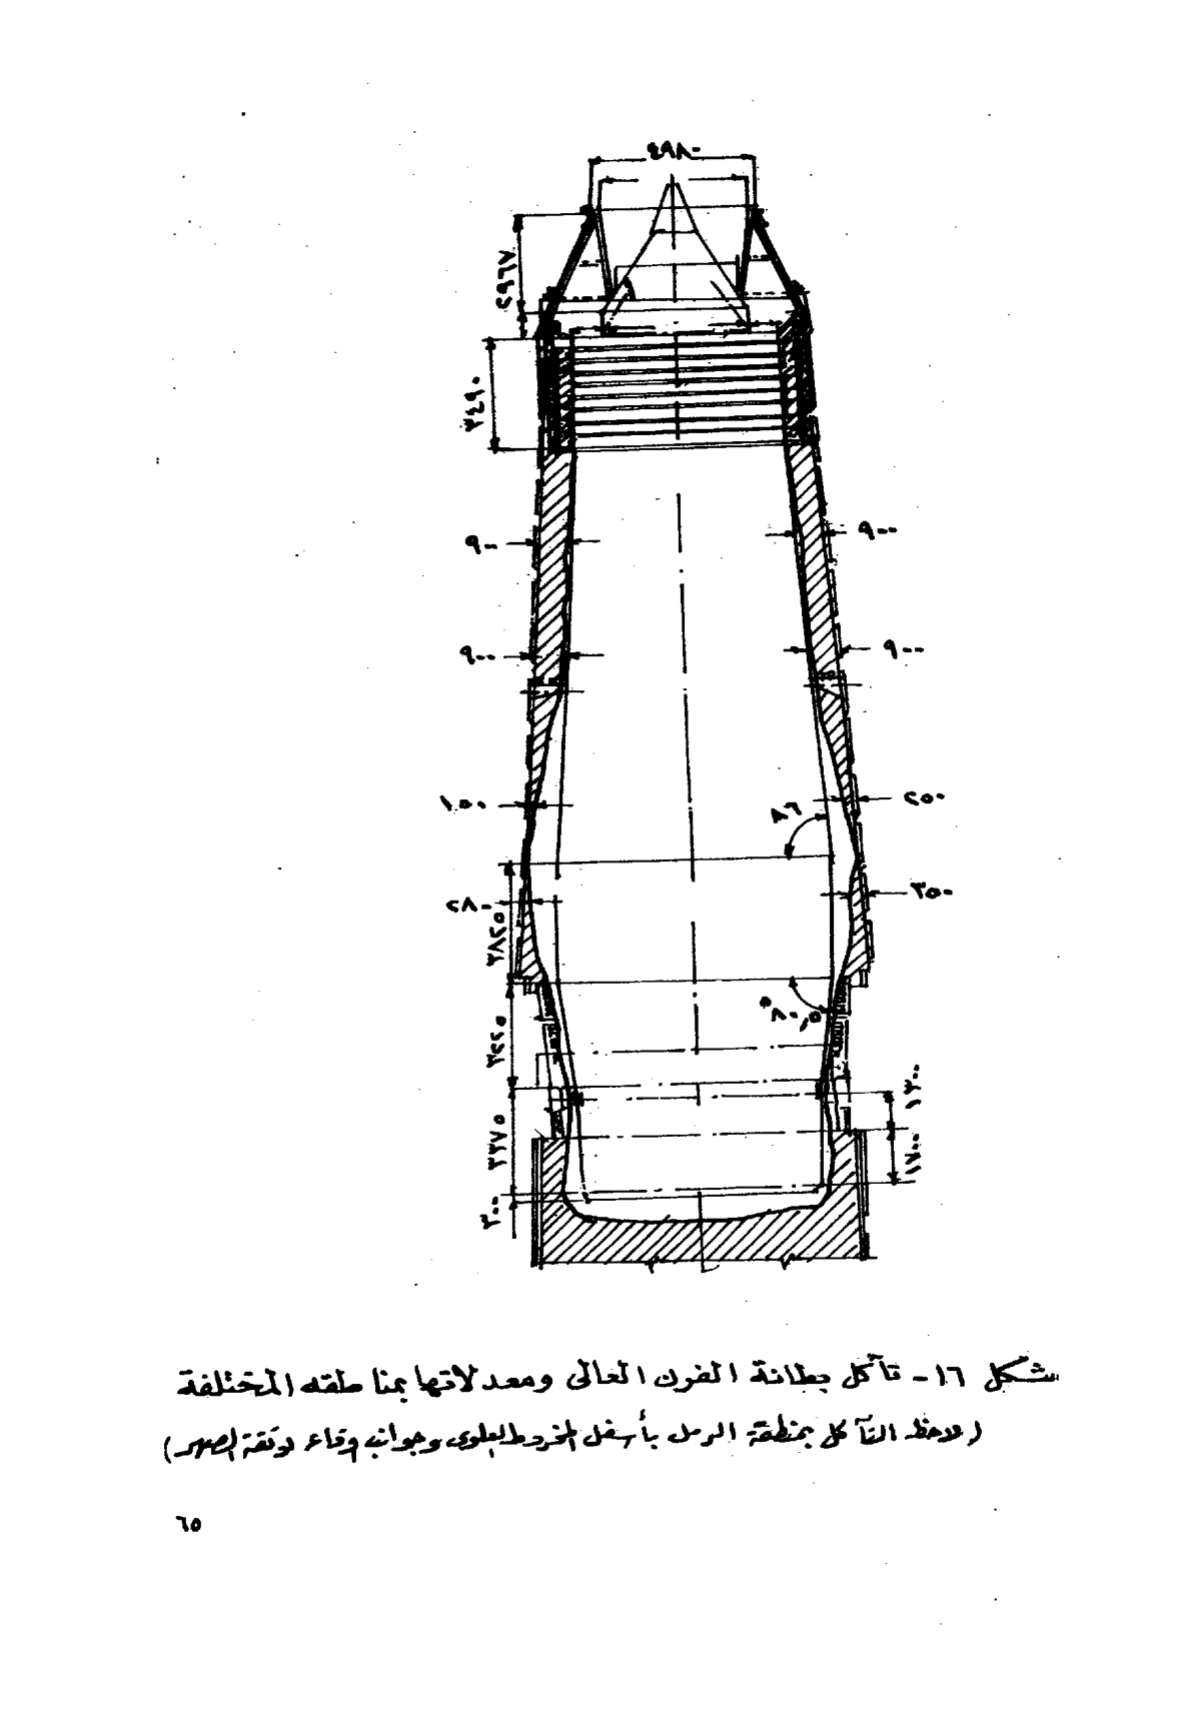 ٤٩٨٠
٢٩٦٧
٣٤٩٠
٩٠٠
٩٠٠
٩٠٠
٩٠٠
١٥٠
٢٥٠
٨٦
٢٨٠
٣٥٠
٣٨٢٥
٨٠,٥°
٣٢٢٥
١٣٠٠
٣٣٧٥
١٧٠٠
٣٠٠
شكل ١٦ - تآكل بطانة الفرن العالى ومعدلاتها بمناطقه المختلفة
(لاحظ التآكل بمنطقة الرمل بأسفل المخروط العلوى وجوانب وقاع بوتقة الصهر)
٦٥